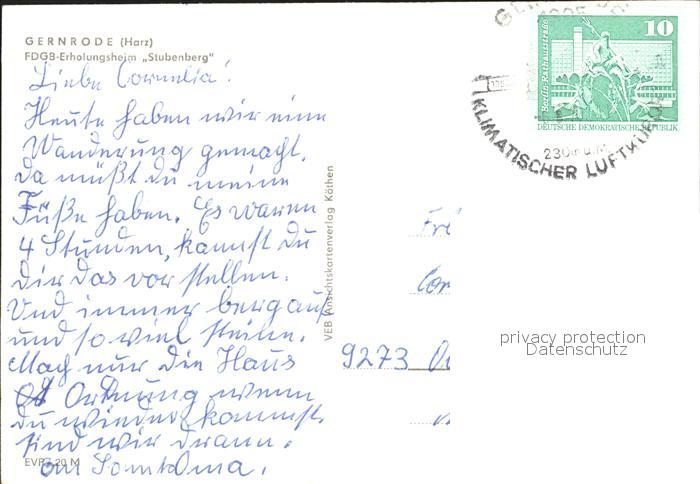 GERNRODE (Harz)
FDGB-Erholungsheim „Stubenberg"
Liebe Cornelia!
Heute haben wir eine
Wanderung gemacht.
da müßt du meine
Füße haben. Es waren
4 Stunden, kannst du
dir das vorstellen.
Und immer bergauf
und so viel Steine.
Mach nur die Haus
Ordnung wenn
du wieder kommst
sind wir drann.
Oma.
EVP -,20 M
VEB Ansichtskartenverlag Köthen
10
Berlin-Rathausstraße
DEUTSCHE DEMOKRATISCHE REPUBLIK
KLIMATISCHER LUFTKURORT
230m ü.M.
Frl
Cor
9273
privacy protection
Datenschutz